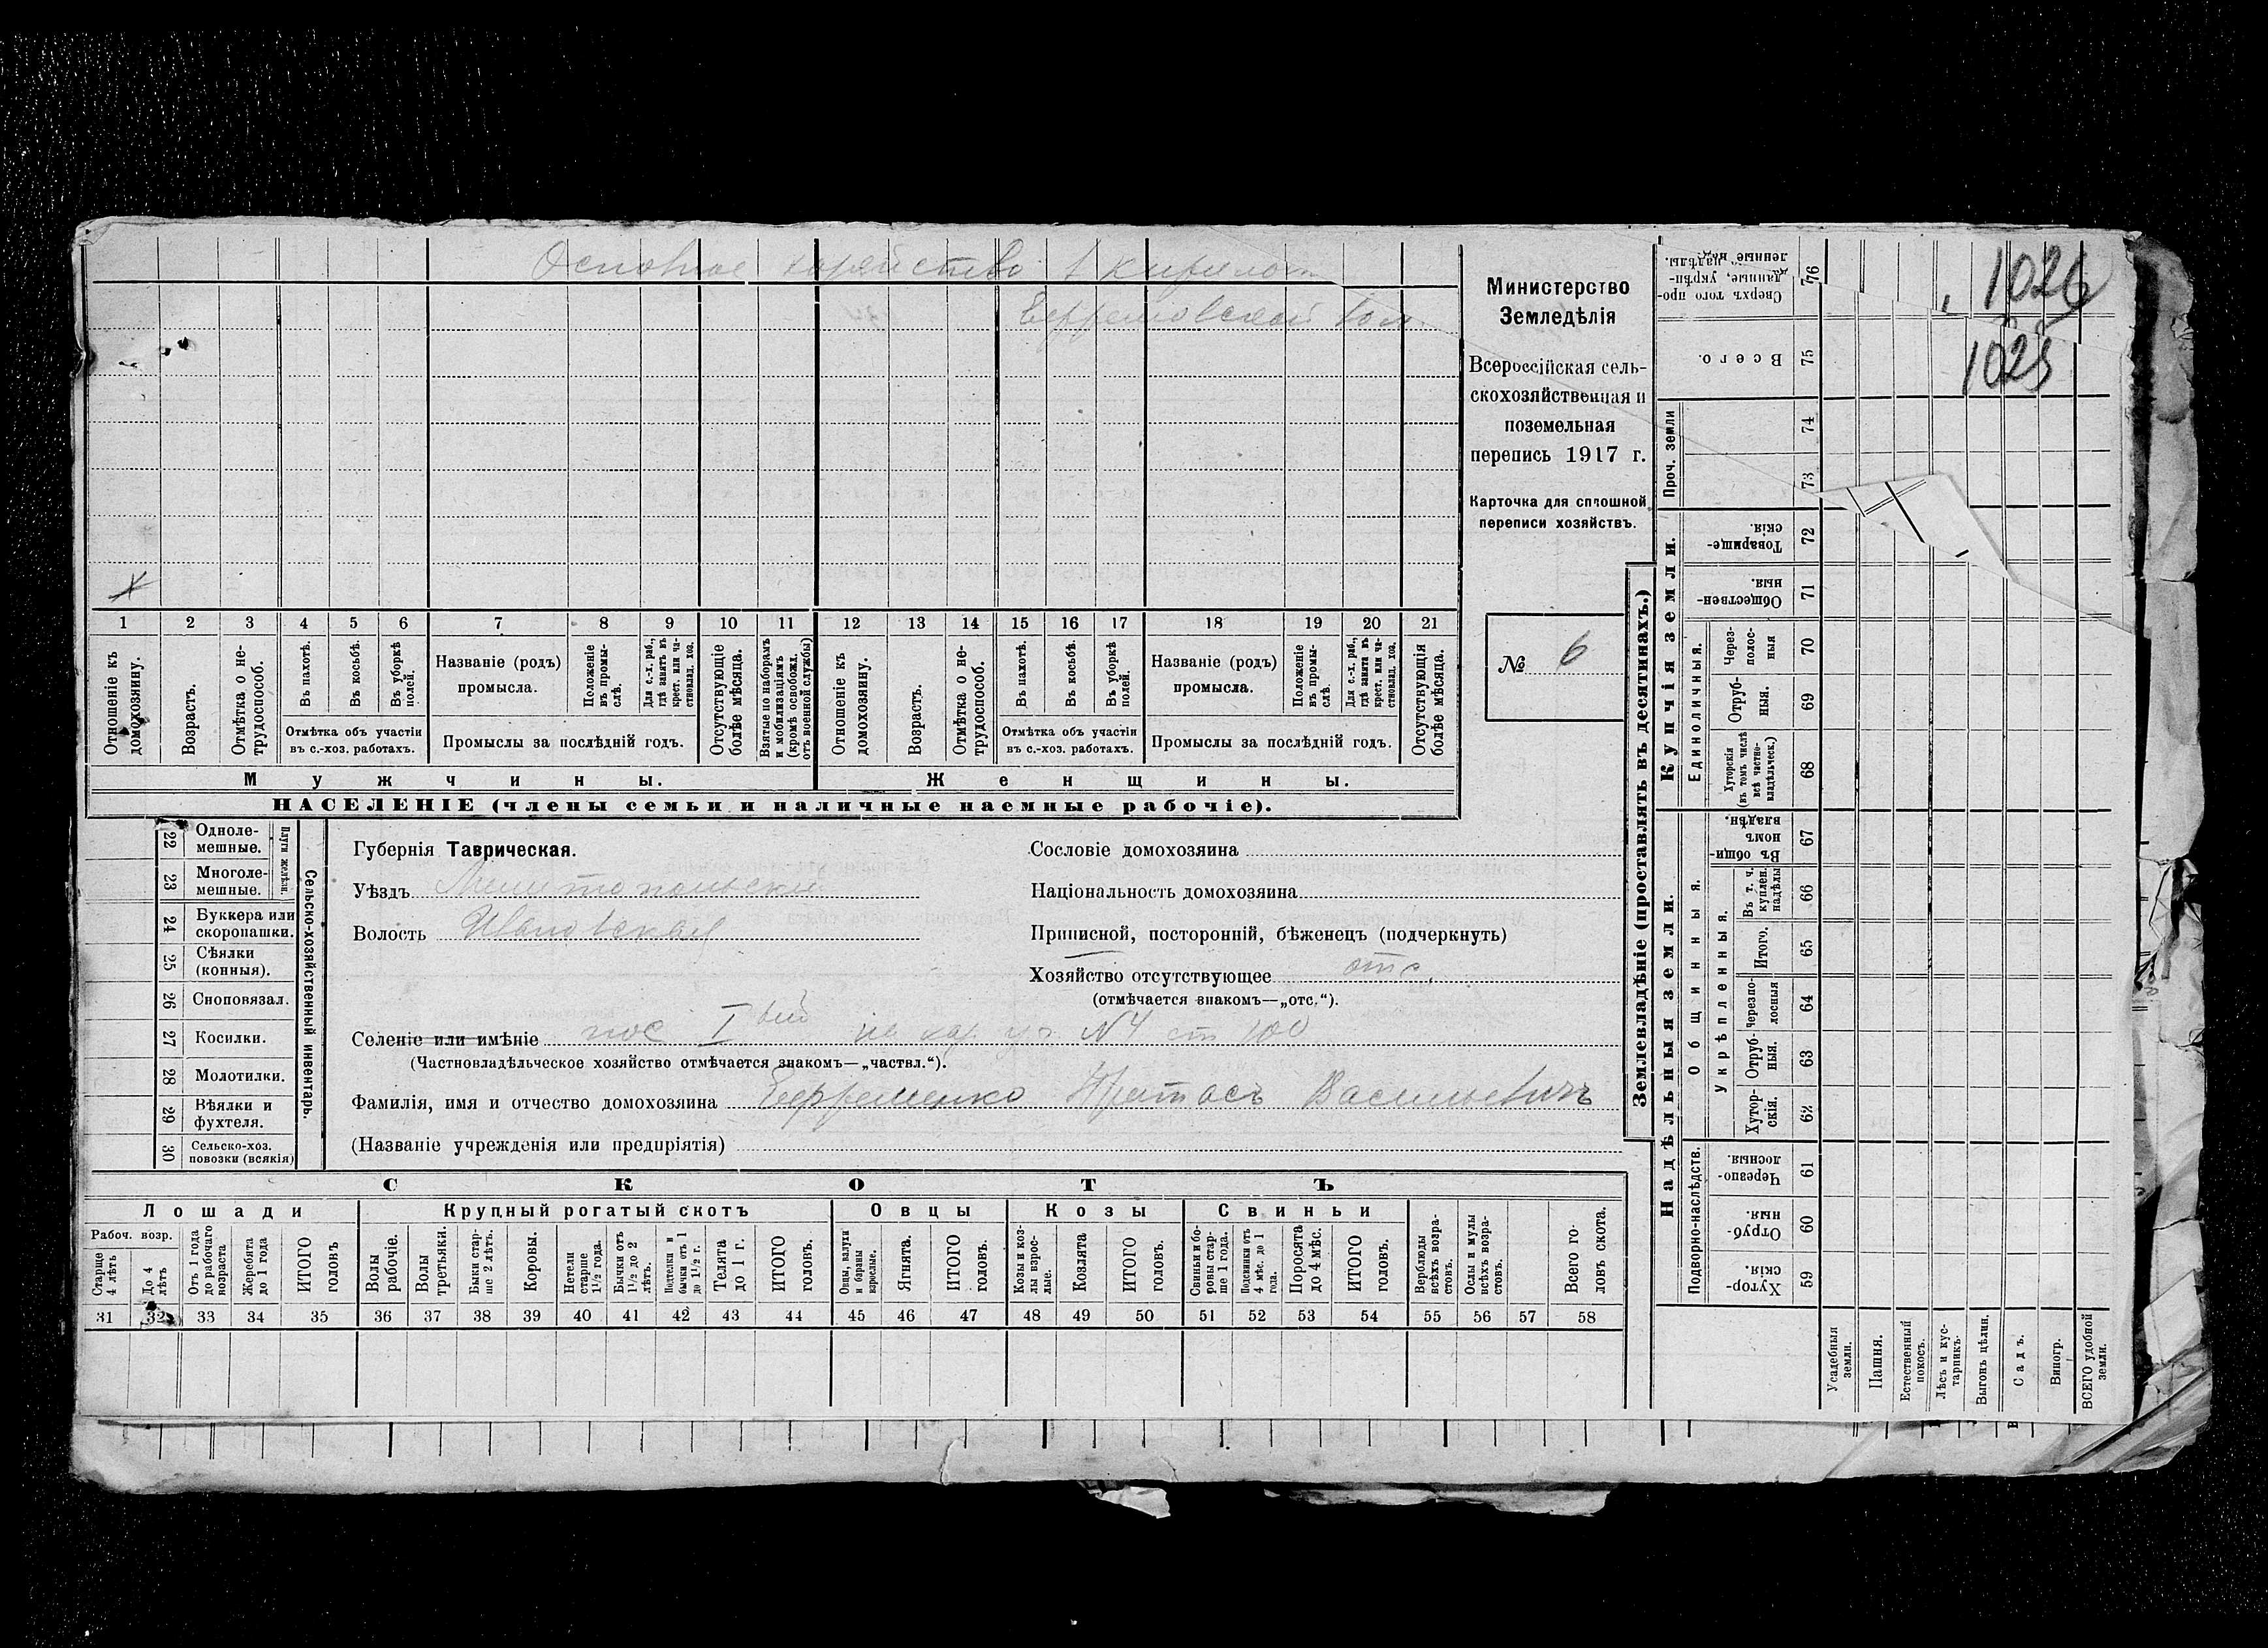 Основное хозяйство в
Ефремовской вол.
1026
1025
Министерство
Земледѣлія
Всероссійская сель-
скохозяйственная и
поземельная
перепись 1917 г.
Карточка для сплошной
переписи хозяйствъ.
№ 6
1 2 3 4 5 6 7 8 9 10 11 12 13 14 15 16 17 18 19 20 21
Отношеніе къ домохозяину.
Возрастъ.
Отмѣтка о не-трудоспособ.
Въ пахотѣ.
Въ косьбѣ.
Въ уборкѣ полей.
Отмѣтка объ участіи
въ с.-хоз. работахъ.
Названіе (родъ)
промысла.
Положеніе въ промы-слѣ.
Для с.-х. раб., гдѣ занятъ въ крест. или ча-стновлад. хоз.
Промыслы за послѣдній годъ.
Отсутствующіе болѣе мѣсяца.
Взятые по наборамъ и мобилизаціямъ (кромѣ освобожд. отъ военной службы)
Отношеніе къ домохозяину.
Возрастъ.
Отмѣтка о не-трудоспособ.
Въ пахотѣ.
Въ косьбѣ.
Въ уборкѣ полей.
Отмѣтка объ участіи
въ с.-хоз. работахъ.
Названіе (родъ)
промысла.
Положеніе въ промы-слѣ.
Для с.-х. раб., гдѣ занята въ крест. или ча-стновлад. хоз.
Промыслы за послѣдній годъ.
Отсутствующія болѣе мѣсяца.
Мужчины.
Женщины.
НАСЕЛЕНІЕ (члены семьи и наличные наемные рабочіе).
22 Однолемешные.
23 Многолемешные.
Плуги желѣзн.
24 Буккера или скоропашки.
25 Сѣялки (конныя).
26 Сноповязал.
27 Косилки.
28 Молотилки.
29 Вѣялки и фухтеля.
30 Сельско-хоз. повозки (всякія)
Сельско-хозяйственный инвентарь.
Губернія Таврическая.
Уѣздъ Мелитопольскій
Волость Ивановская
Сословіе домохозяина
Національность домохозяина
Приписной, посторонній, бѣженецъ (подчеркнуть)
Хозяйство отсутствующее отс.
(отмѣчается знакомъ—„отс.“).
Селеніе или имѣніе пос I вый № 4 ст 100
(Частновладѣльческое хозяйство отмѣчается знакомъ—„частвл.“).
Фамилія, имя и отчество домохозяина Ефременко Протасъ Васильевичъ
(Названіе учрежденія или предпріятія)
СКОТЪ
Лошади
Крупный рогатый скотъ
Овцы
Козы
Свиньи
Рабоч. возр.
Старше 4 лѣтъ
До 4 лѣтъ
Отъ 1 года до рабочаго возраста
Жеребята до 1 года
ИТОГО головъ
Волы рабочіе.
Волы третьяки.
Быки стар-ше 2 лѣтъ.
Коровы.
Нетели старше 1½ года.
Бычки отъ 1½ до 2 лѣтъ.
Подтелки и бычки отъ 1 до 1½ г.
Телята до 1 г.
ИТОГО головъ.
Овцы, валухи и бараны взрослые.
Ягнята.
ИТОГО головъ.
Козы и коз-лы взрос-лые.
Козлята
ИТОГО головъ.
Свиньи и бо-ровы стар-ше 1 года.
Подсвинки отъ 4 мѣс. до 1 года.
Поросята до 4 мѣс.
ИТОГО головъ.
Верблюды всѣхъ возра-стовъ.
Ослы и мулы всѣхъ возра-стовъ.
Всего го-ловъ скота.
31 32 33 34 35 36 37 38 39 40 41 42 43 44 45 46 47 48 49 50 51 52 53 54 55 56 57 58
Землевладѣніе (проставлять въ десятинахъ.)
Купчія земли.
Надѣльныя земли.
Проч. земли
Единоличныя.
Общинныя.
Укрѣпленныя.
Подворно-наслѣдств.
76 Сверхъ того про-данные, укрѣп-ленные надѣлы.
75 Всего.
74
73
72 Товарище-скія.
71 Обществен-ныя.
70 Через-полос-ныя
69 Отруб-ныя.
68 Хуторскія (въ томъ числѣ всѣ частно-владѣльческ.)
67 Въ общин-номъ владѣн.
66 Въ т. ч. куплен. надѣлы
65 Итого.
64 Черезпо-лосныя
63 Отруб-ныя.
62 Хутор-скія.
61 Черезпо-лосныя.
60 Отруб-ныя.
59 Хутор-скія.
Усадебныя земли.
Пашня.
Естественный покосъ.
Лѣсъ и кус-тарникъ.
Выгонъ цѣлин.
Садъ.
Виногр.
ВСЕГО удобной земли.